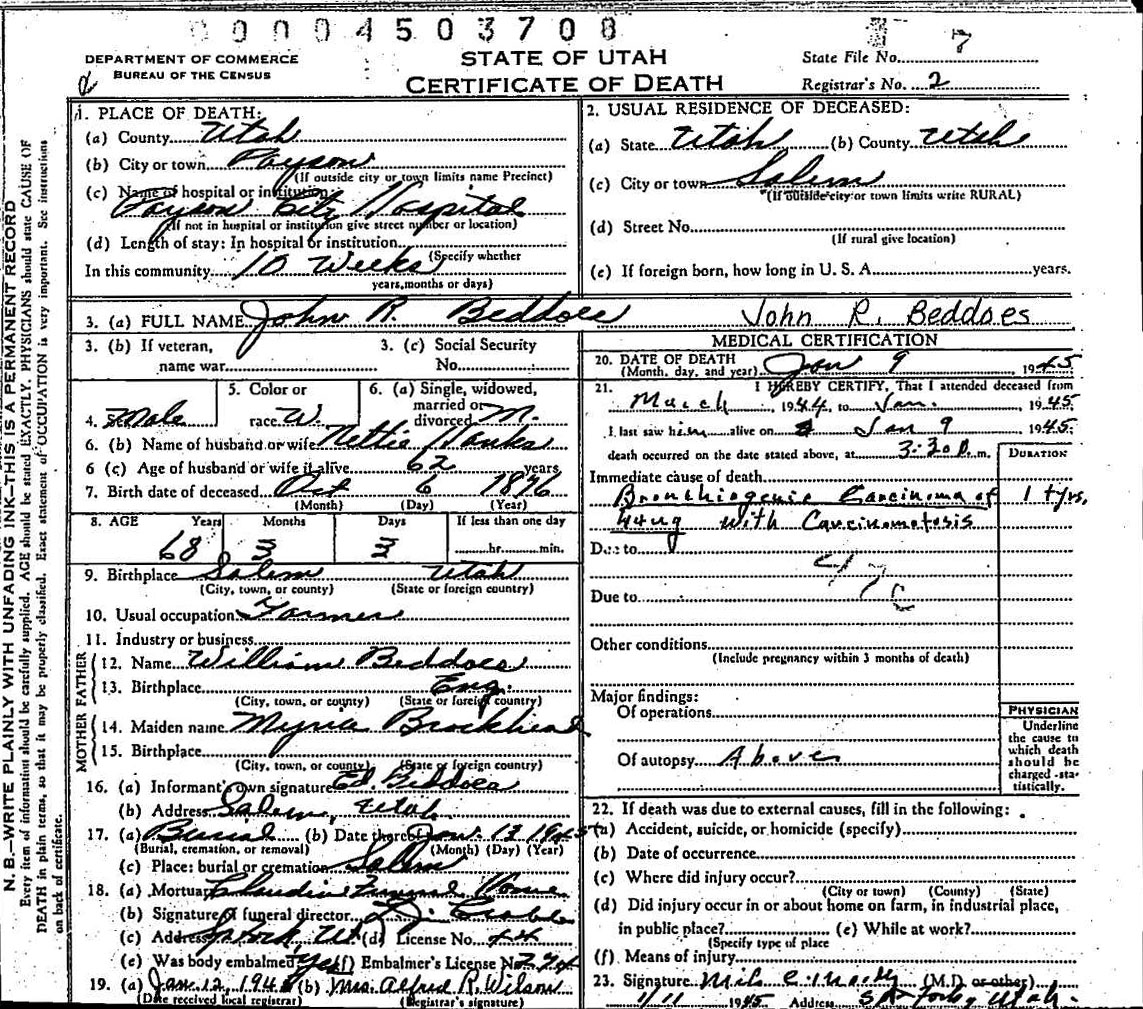 00004503708
DEPARTMENT OF COMMERCE
BUREAU OF THE CENSUS
STATE OF UTAH
CERTIFICATE OF DEATH
State File No. 7
Registrar's No. 2
N. B.—WRITE PLAINLY WITH UNFADING INK—THIS IS A PERMANENT RECORD
Every item of information should be carefully supplied. AGE should be stated EXACTLY. PHYSICIANS should state CAUSE OF
DEATH in plain terms, so that it may be properly classified. Exact statement of OCCUPATION is very important. See instructions
on back of certificate.
1. PLACE OF DEATH:
(a) County Utah
(b) City or town Payson
(If outside city or town limits name Precinct)
(c) Name of hospital or institution:
Payson City Hospital
(If not in hospital or institution give street number or location)
(d) Length of stay: In hospital or institution
(Specify whether
In this community 10 Weeks
years, months or days)
2. USUAL RESIDENCE OF DECEASED:
(a) State Utah (b) County Utah
(c) City or town Salem
(If outside city or town limits write RURAL)
(d) Street No.
(If rural give location)
(e) If foreign born, how long in U. S. A. years.
3. (a) FULL NAME John R. Beddoes John R. Beddoes
3. (b) If veteran,
name war
3. (c) Social Security
No.
4. Male
5. Color or
race W.
6. (a) Single, widowed,
married or
divorced M.
6. (b) Name of husband or wife Nettie Hanks
6 (c) Age of husband or wife if alive 62 years
7. Birth date of deceased Oct 6 1876
(Month) (Day) (Year)
8. AGE Years Months Days If less than one day
68 3 3 hr. min.
9. Birthplace Salem Utah
(City, town, or county) (State or foreign country)
10. Usual occupation Farmer
11. Industry or business
FATHER
12. Name William Beddoes
13. Birthplace Eng.
(City, town, or county) (State or foreign country)
MOTHER
14. Maiden name Brockhead
15. Birthplace
(City, town, or county) (State or foreign country)
16. (a) Informant's own signature Ed. Beddoes
(b) Address Salem, Utah
17. (a) Burial (b) Date thereof Jan. 13 1945
(Burial, cremation, or removal) (Month) (Day) (Year)
(c) Place: burial or cremation Salem
18. (a) Mortuary Claudin Funeral Home
(b) Signature of funeral director
(c) Address Ut. (d) License No. 44
(e) Was body embalmed Yes (f) Embalmer's License No.
19. (a) Jan. 12, 1945 (b) Mrs. Alfred R. Wilson
(Date received local registrar) (Registrar's signature)
MEDICAL CERTIFICATION
20. DATE OF DEATH
(Month, day, and year) Jan 9 1945
21. I HEREBY CERTIFY, That I attended deceased from
March, 1944, to Jan., 1945.
I last saw him alive on Jan 9 1945.
death occurred on the date stated above, at 3:30 P. m.
DURATION
Immediate cause of death
Bronchiogenic Carcinoma of 1 yrs.
Lung with Carcinomatosis
Due to
47c
Due to
Other conditions
(Include pregnancy within 3 months of death)
Major findings:
Of operations
Of autopsy Above
PHYSICIAN
Underline
the cause to
which death
should be
charged sta-
tistically.
22. If death was due to external causes, fill in the following:
(a) Accident, suicide, or homicide (specify)
(b) Date of occurrence
(c) Where did injury occur?
(City or town) (County) (State)
(d) Did injury occur in or about home on farm, in industrial place,
in public place? (e) While at work?
(Specify type of place
(f) Means of injury
23. Signature (M.D. or other)
1/11 1945 Address Sp. Fork, Utah.